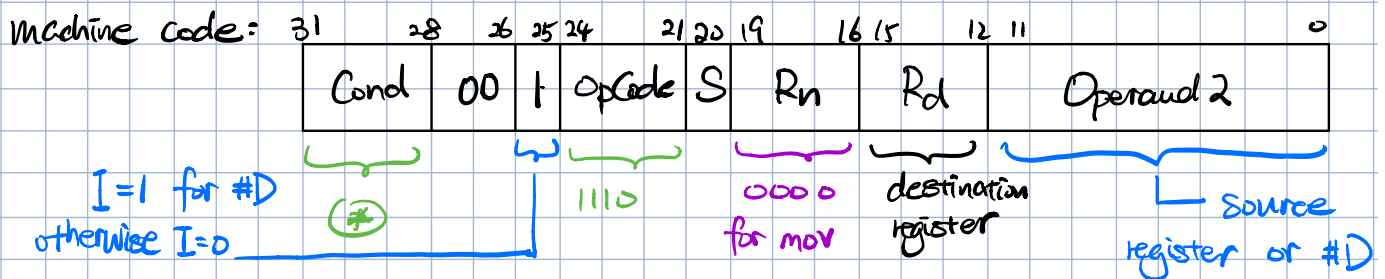 machine code: 31 28 26 25 24 21 20 19 16 15 12 11 0
Cond 00 I OpCode S Rn Rd Operand 2
I=1 for #D
otherwise I=0
*
1110
0000
for mov
destination
register
source
register or #D